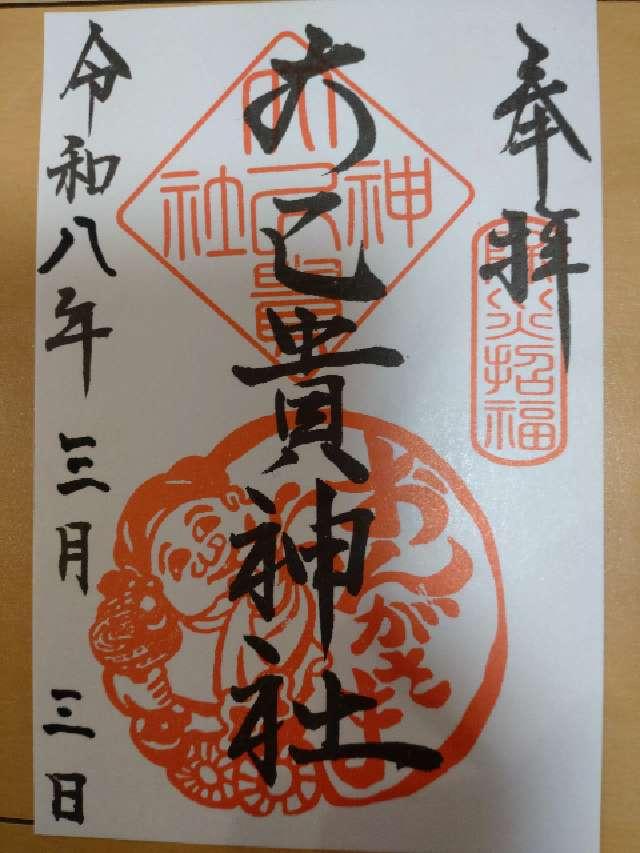 奉拝
除災招福
大己貴神社
大己貴神社
おんがさま
令和八年三月三日